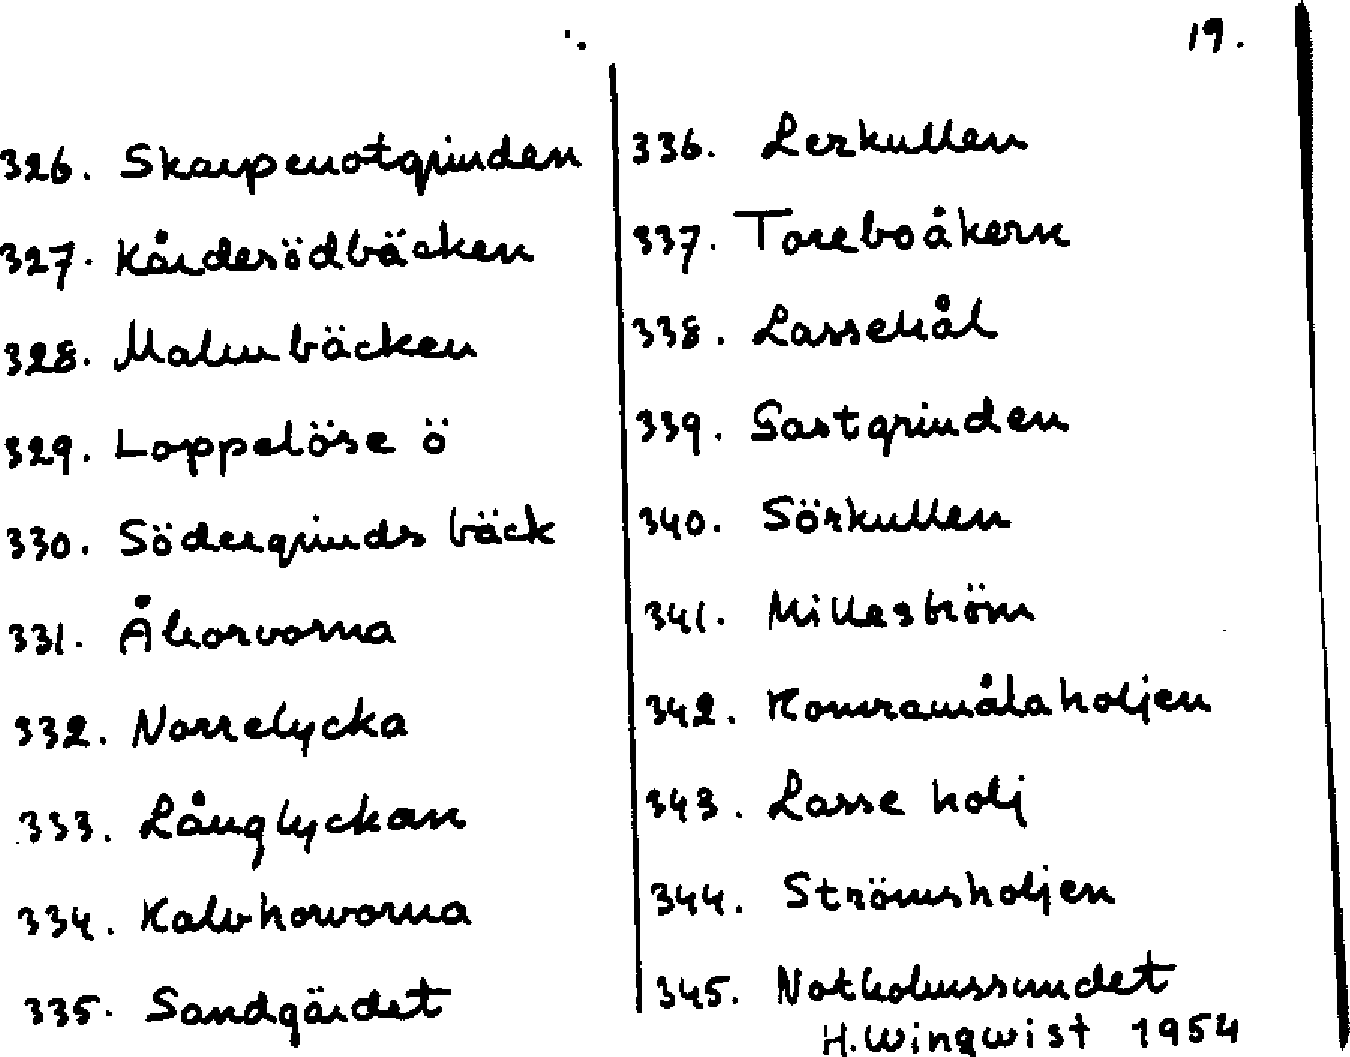 19.
326. Skarpenotgrinden
327. Kårdesödbäcken
328. Malmbäcken
329. Loppelöse ö
330. Södergrinds bäck
331. Åhorvorna
332. Norrelycka
333. Långlyckan
334. Kalvhorvorna
335. Sandgärdet
336. Lerkullen
337. Toreboåkern
338. Lassehål
339. Gastgrinden
340. Sörkullen
341. Milleström
342. Komramålaholjen
343. Lasse holj
344. Strömsholjen
345. Notholmssundet
H. Wingwist 1954